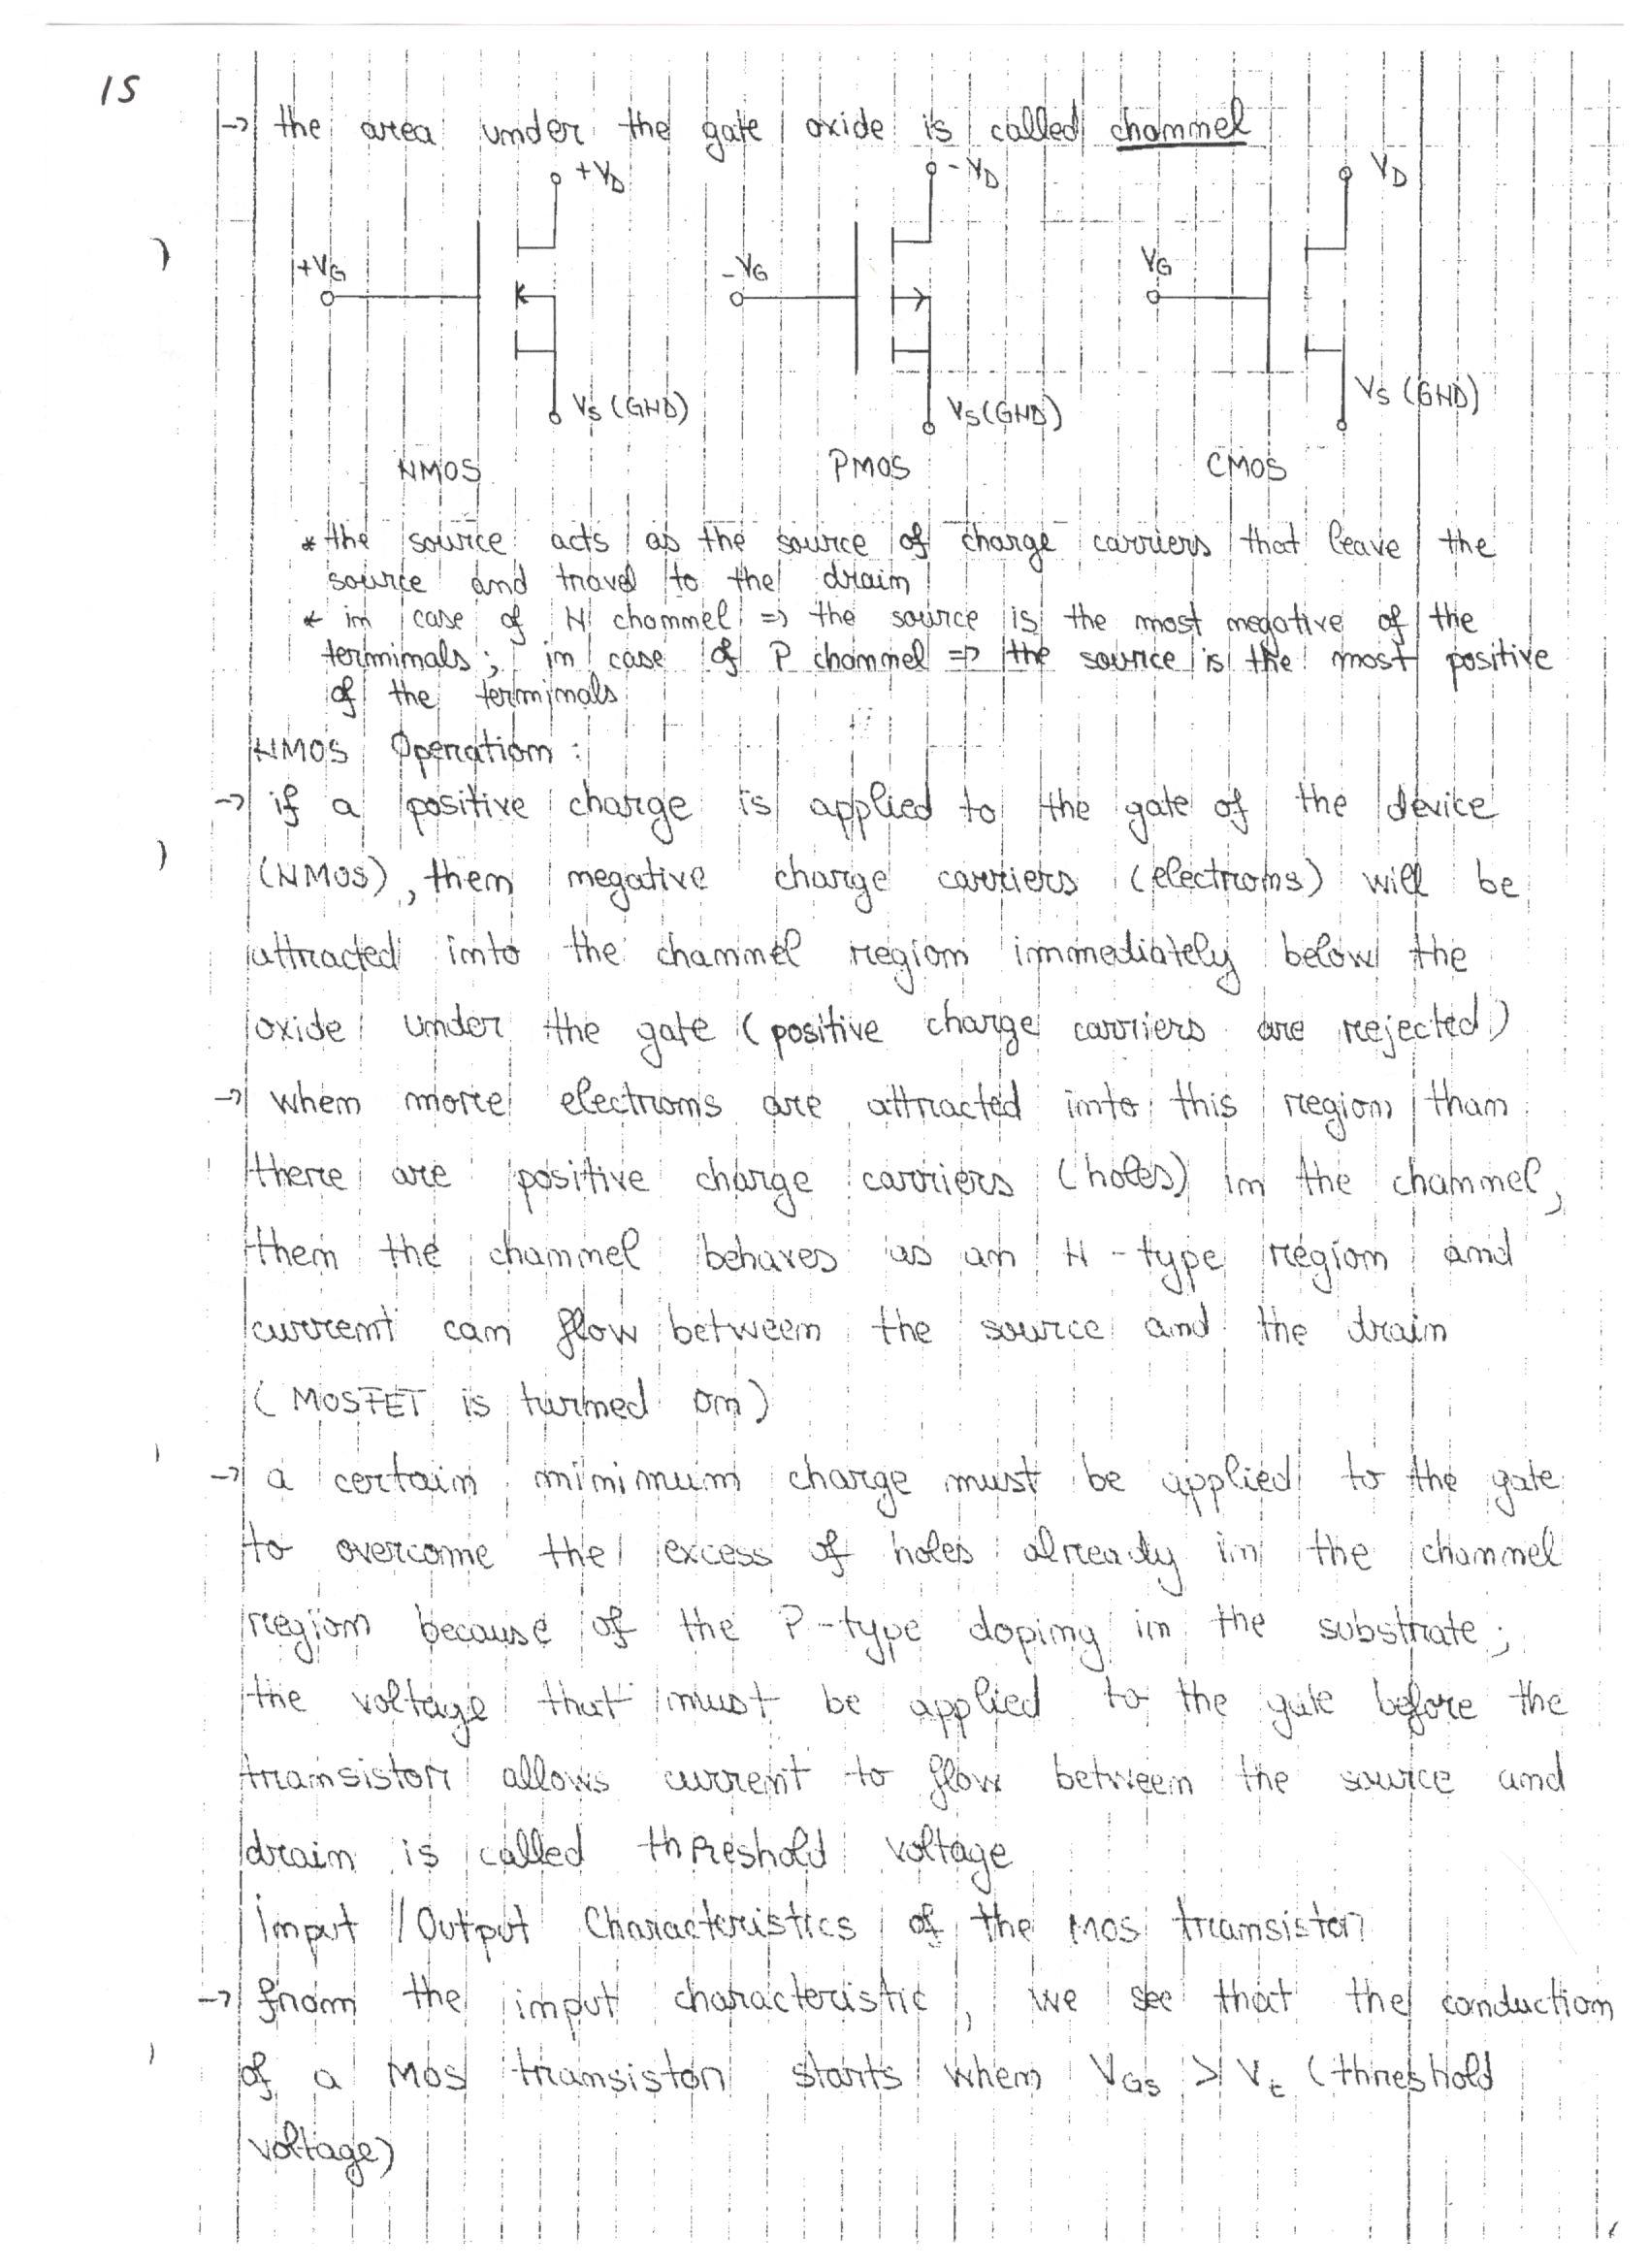 15
→ the area under the gate oxide is called channel
+VD -VD VD
+VG -VG VG
VS (GND) VS (GND) VS (GND)
NMOS PMOS CMOS
* the source acts as the source of charge carriers that leave the
source and travel to the drain
* in case of N channel => the source is the most negative of the
terminals; in case of P channel => the source is the most positive
of the terminals
NMOS Operation:
→ if a positive charge is applied to the gate of the device
(NMOS), then negative charge carriers (electrons) will be
attracted into the channel region immediately below the
oxide under the gate (positive charge carriers are rejected)
→ when more electrons are attracted into this region than
there are positive charge carriers (holes) in the channel,
then the channel behaves as an N-type region and
current can flow between the source and the drain
(MOSFET is turned on)
→ a certain minimum charge must be applied to the gate
to overcome the excess of holes already in the channel
region because of the P-type doping in the substrate;
the voltage that must be applied to the gate before the
transistor allows current to flow between the source and
drain is called threshold voltage
Input / Output Characteristics of the MOS transistor
→ from the input characteristic, we see that the conduction
of a MOS transistor starts when VGS > Vt (threshold
voltage)